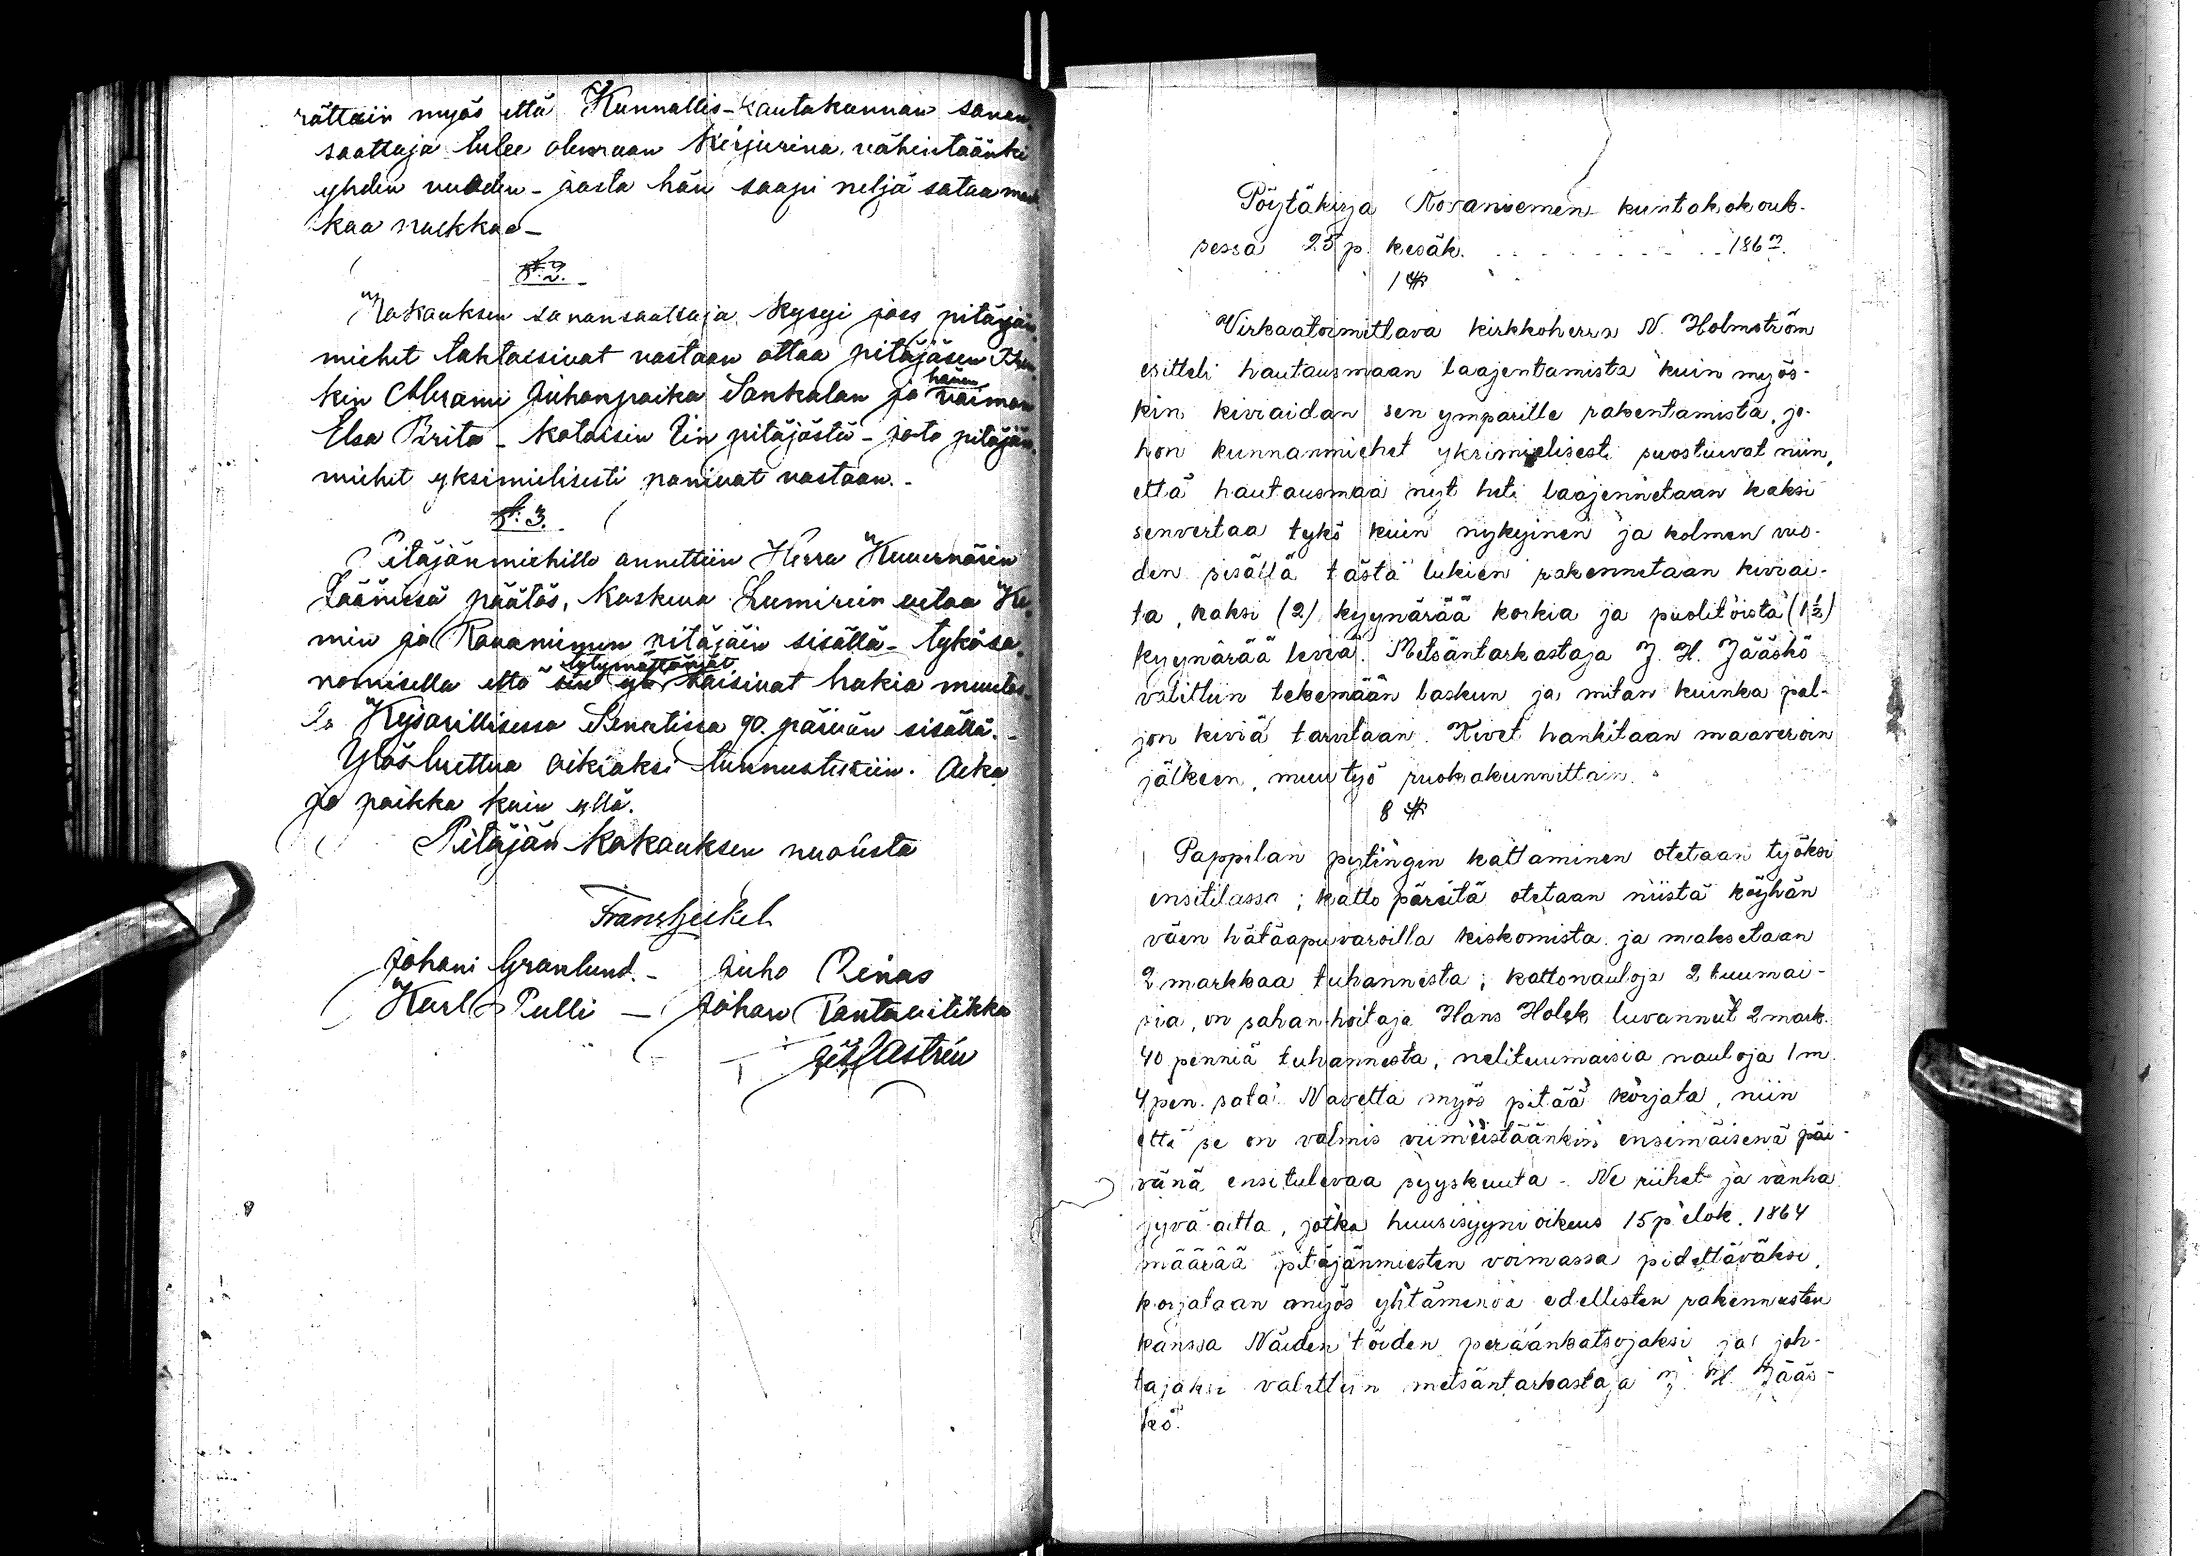 rättiin myös että Kunnallis-lautakunnan sanan
saattaja tulee olemaan Kirjurina vähintäänki
yhden vuoden - josta hän saapi neljä sataa mark
kaa palkkaa -
§: 2.
Kokouksen sanansaattaja kysyi jos pitäjän
miehet tahtoisivat vastaan ottaa pitäjäsen
kin Abrami Juhanpoika Sankalan ja hänen vaiman
Elsa Brita - kotoisin Iin pitäjästä - jota pitäjän
miehet yksimielisesti panivat vastaan. -
§: 3.
Pitäjänmiehille annettiin Herra Kuvernörin
Läänissä päätös, koskeva Lumirein aitaa Ke
min ja Rovaniemen pitäjäin sisällä - tykösa
nomisella että tytymättömät taisivat hakia muutos
ta Kejsarillisessa Senatissa 90. päivän sisällä. -
Ylös luettua oikiaksi tunnustettiin. Aika
ja paikka kuin yllä.
Pitäjän Kokouksen puolesta
Frans Heikel
Johani Granlund. - Juho Oinas
Karl Pulli - Johan Rantavitikka
Castrén
Pöytäkirja Rovaniemen kuntakokouk-
sessa 25 p. kesäk. . . . . . . . . . 1867.
1 §
Virkaatoimittava kirkkoherra N. Holmström
esitteli hautausmaan laajentamista kuin myös-
kin kiviaidan sen ympärille rakentamista, jo-
hon kunnanmiehet yksimielisesti suostuivat niin,
että hautausmaa nyt heti laajennetaan kaksi
senvertaa tykö kuin nykyinen ja kolmen vuo-
den sisällä tästä lukien rakennetaan kiviai-
ta, kaksi (2) kyynärää korkia ja puolitoista (1½)
kyynärää leviä. Metsäntarkastaja J. H. Jääskö
valittiin tekemään laskun ja mitan kuinka pal-
jon kiviä tarvitaan. Kivet hankitaan maaveroin
jälkeen, muu työ ruokakunnittain.
8 §
Pappilan pytingin kattaminen otetaan työksi
ensitilassa; katto päreitä otetaan niistä köyhän
väen hätäapuvaroilla kiskomista ja maksetaan
2 markkaa tuhannesta; kattonauloja 2 tuumai-
sia, on sahanhoitaja Hans Holck luvannut 2 mark.
40 penniä tuhannesta, nelituumaisia nauloja 1 m.
4 pen. sata. Navetta myös pitää korjata, niin
että se on valmis viimeistäänkin ensimäisenä päi-
vänä ensitulevaa syyskuuta. - Ne riihet ja vanha
jyvä-aitta, jotka huusisyyni oikeus 15 p. elok. 1864
määrää pitäjänmiesten voimassa pidettäväksi,
korjataan myös yhtämenoa edellisten rakennusten
kanssa. Näiden töiden peräänkatsojaksi ja joh-
tajaksi valittiin metsäntarkastaja J. H. Jääs-
kö.